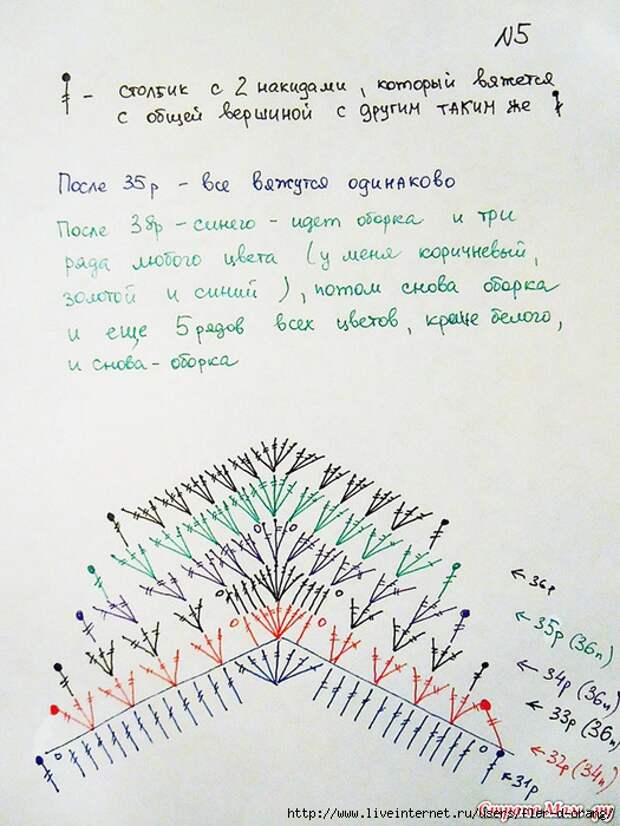 N5
- столбик с 2 накидами, который вяжется
с общей вершиной с другим таким же
После 35р - все вяжутся одинаково
После 38р - синего - идет оборка и три
ряда любого цвета (у меня коричневый,
золотой и синий), потом снова оборка
и еще 5 рядов всех цветов, кроме белого,
и снова - оборка
← 36р
← 35р (36п)
← 34р (36п)
← 33р (36п)
← 32р (34п)
← 31р
http://www.liveinternet.ru/users/fler-d-orang/